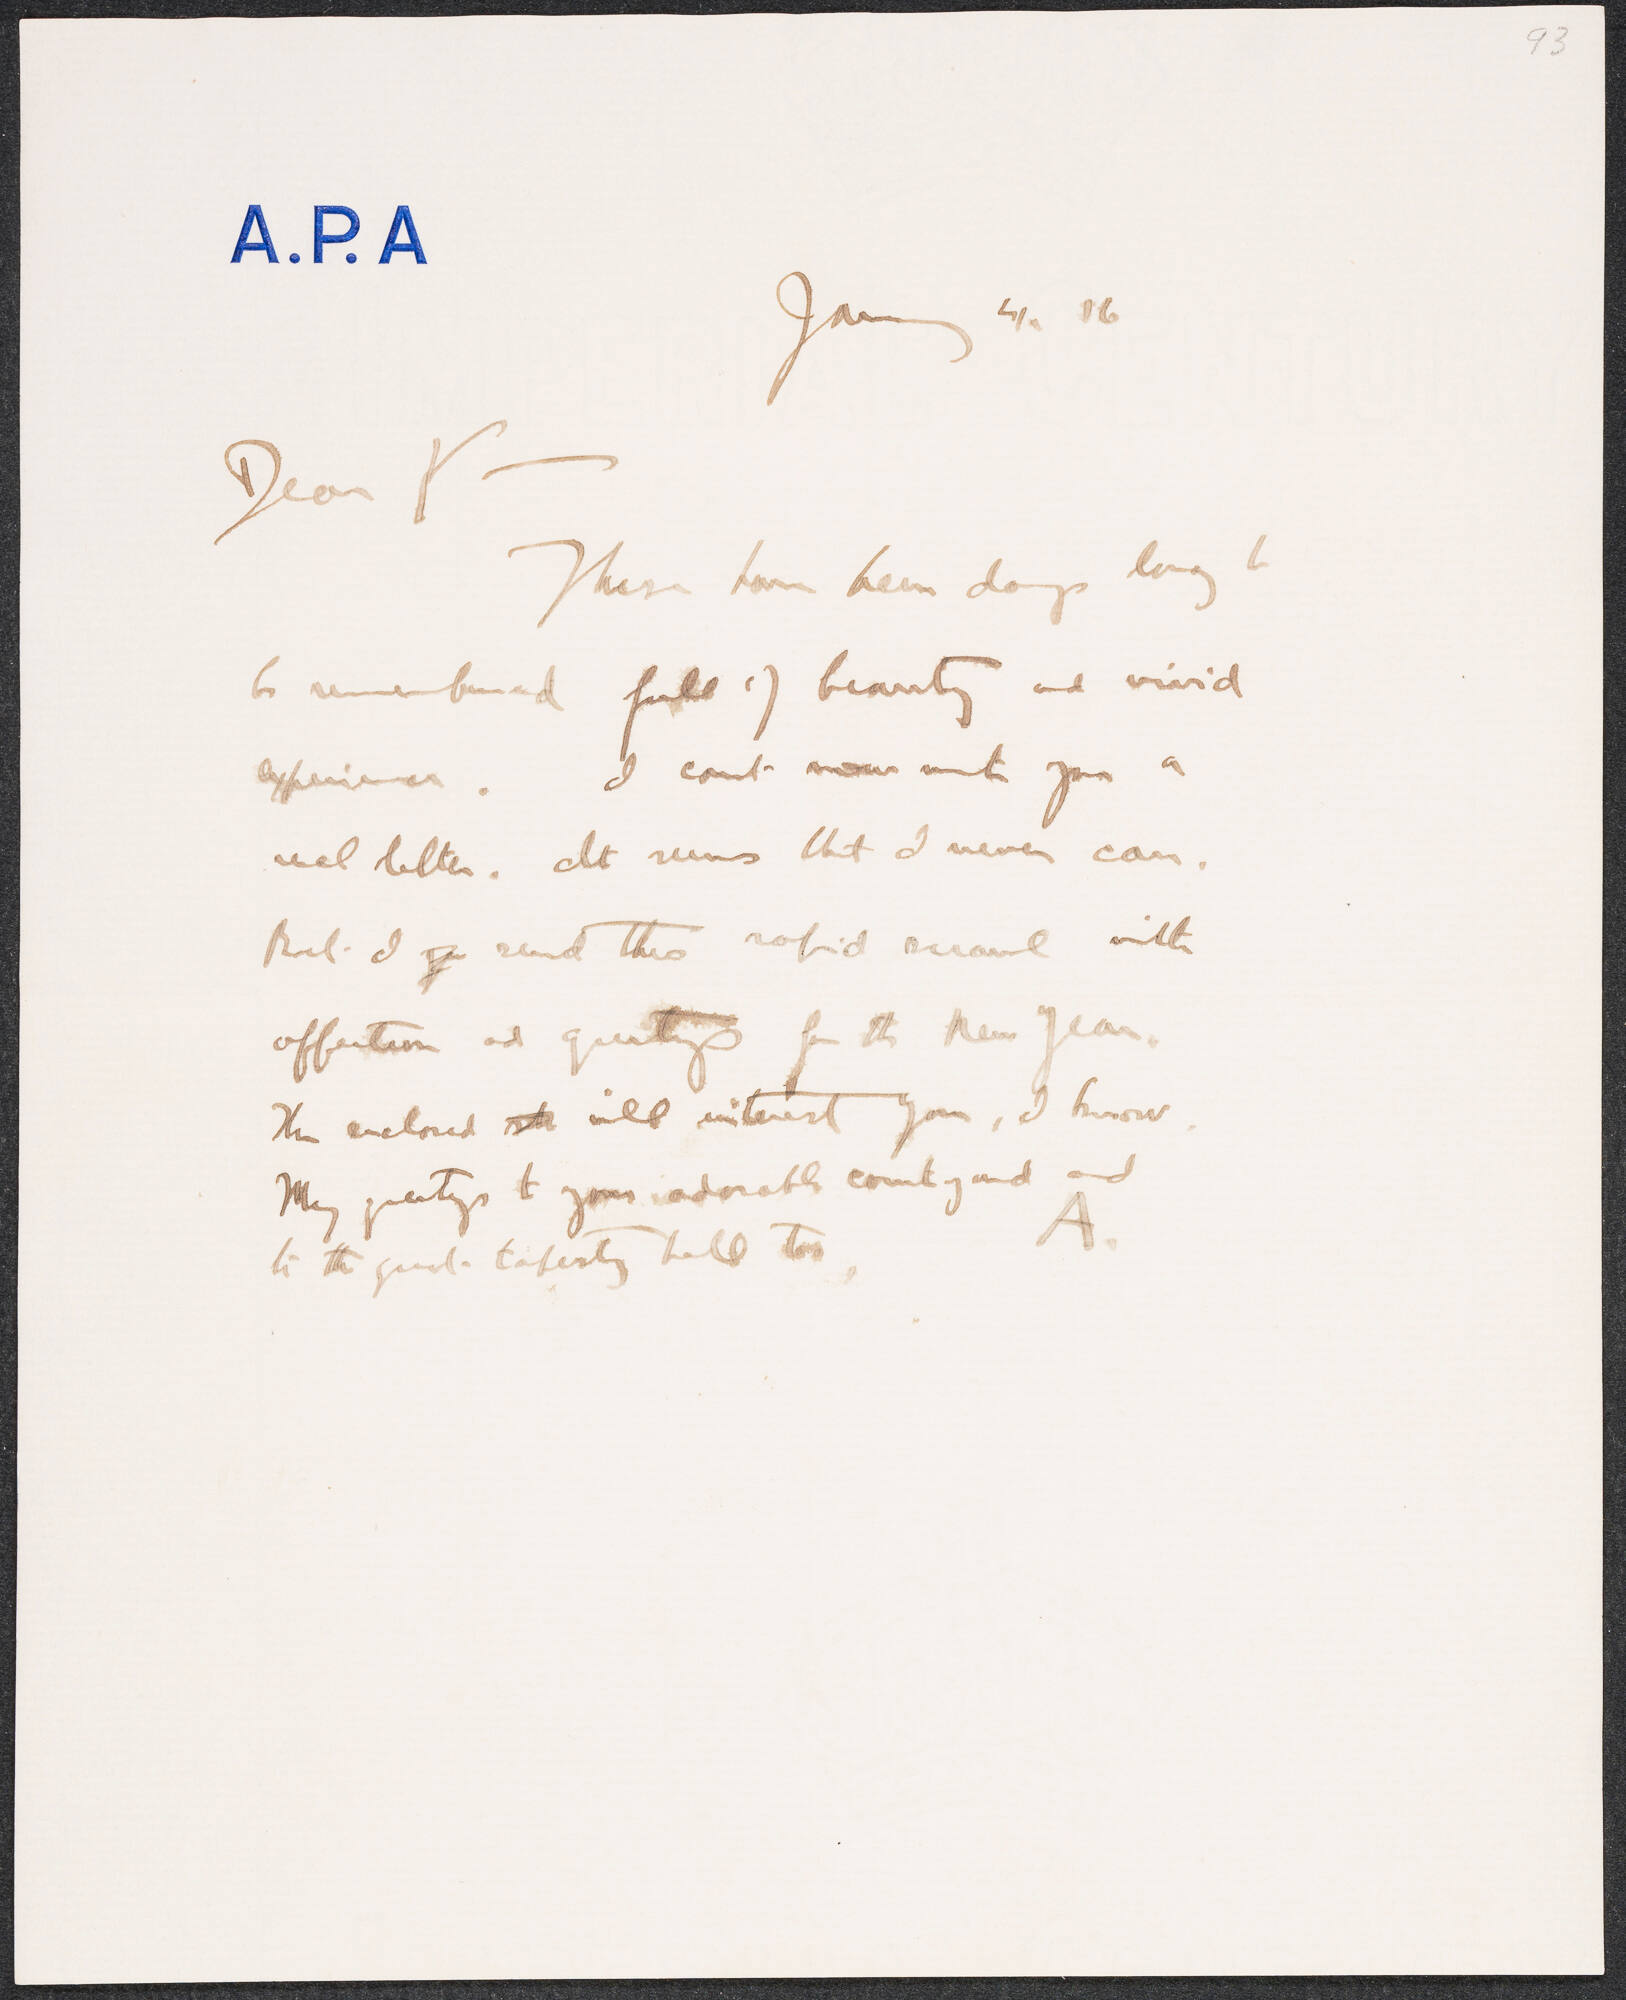 93
A.P.A
January 4. 16
Dear Y —
These have been days long to
be remembered full of beauty and vivid
experiences. I can't now write you a
real letter. It seems that I never can.
But I send this rapid scrawl with
affection and greetings for the New Year.
The enclosed will interest you, I know.
My greetings to your adorable courtyard and
to the great tapestry hall too.
A.